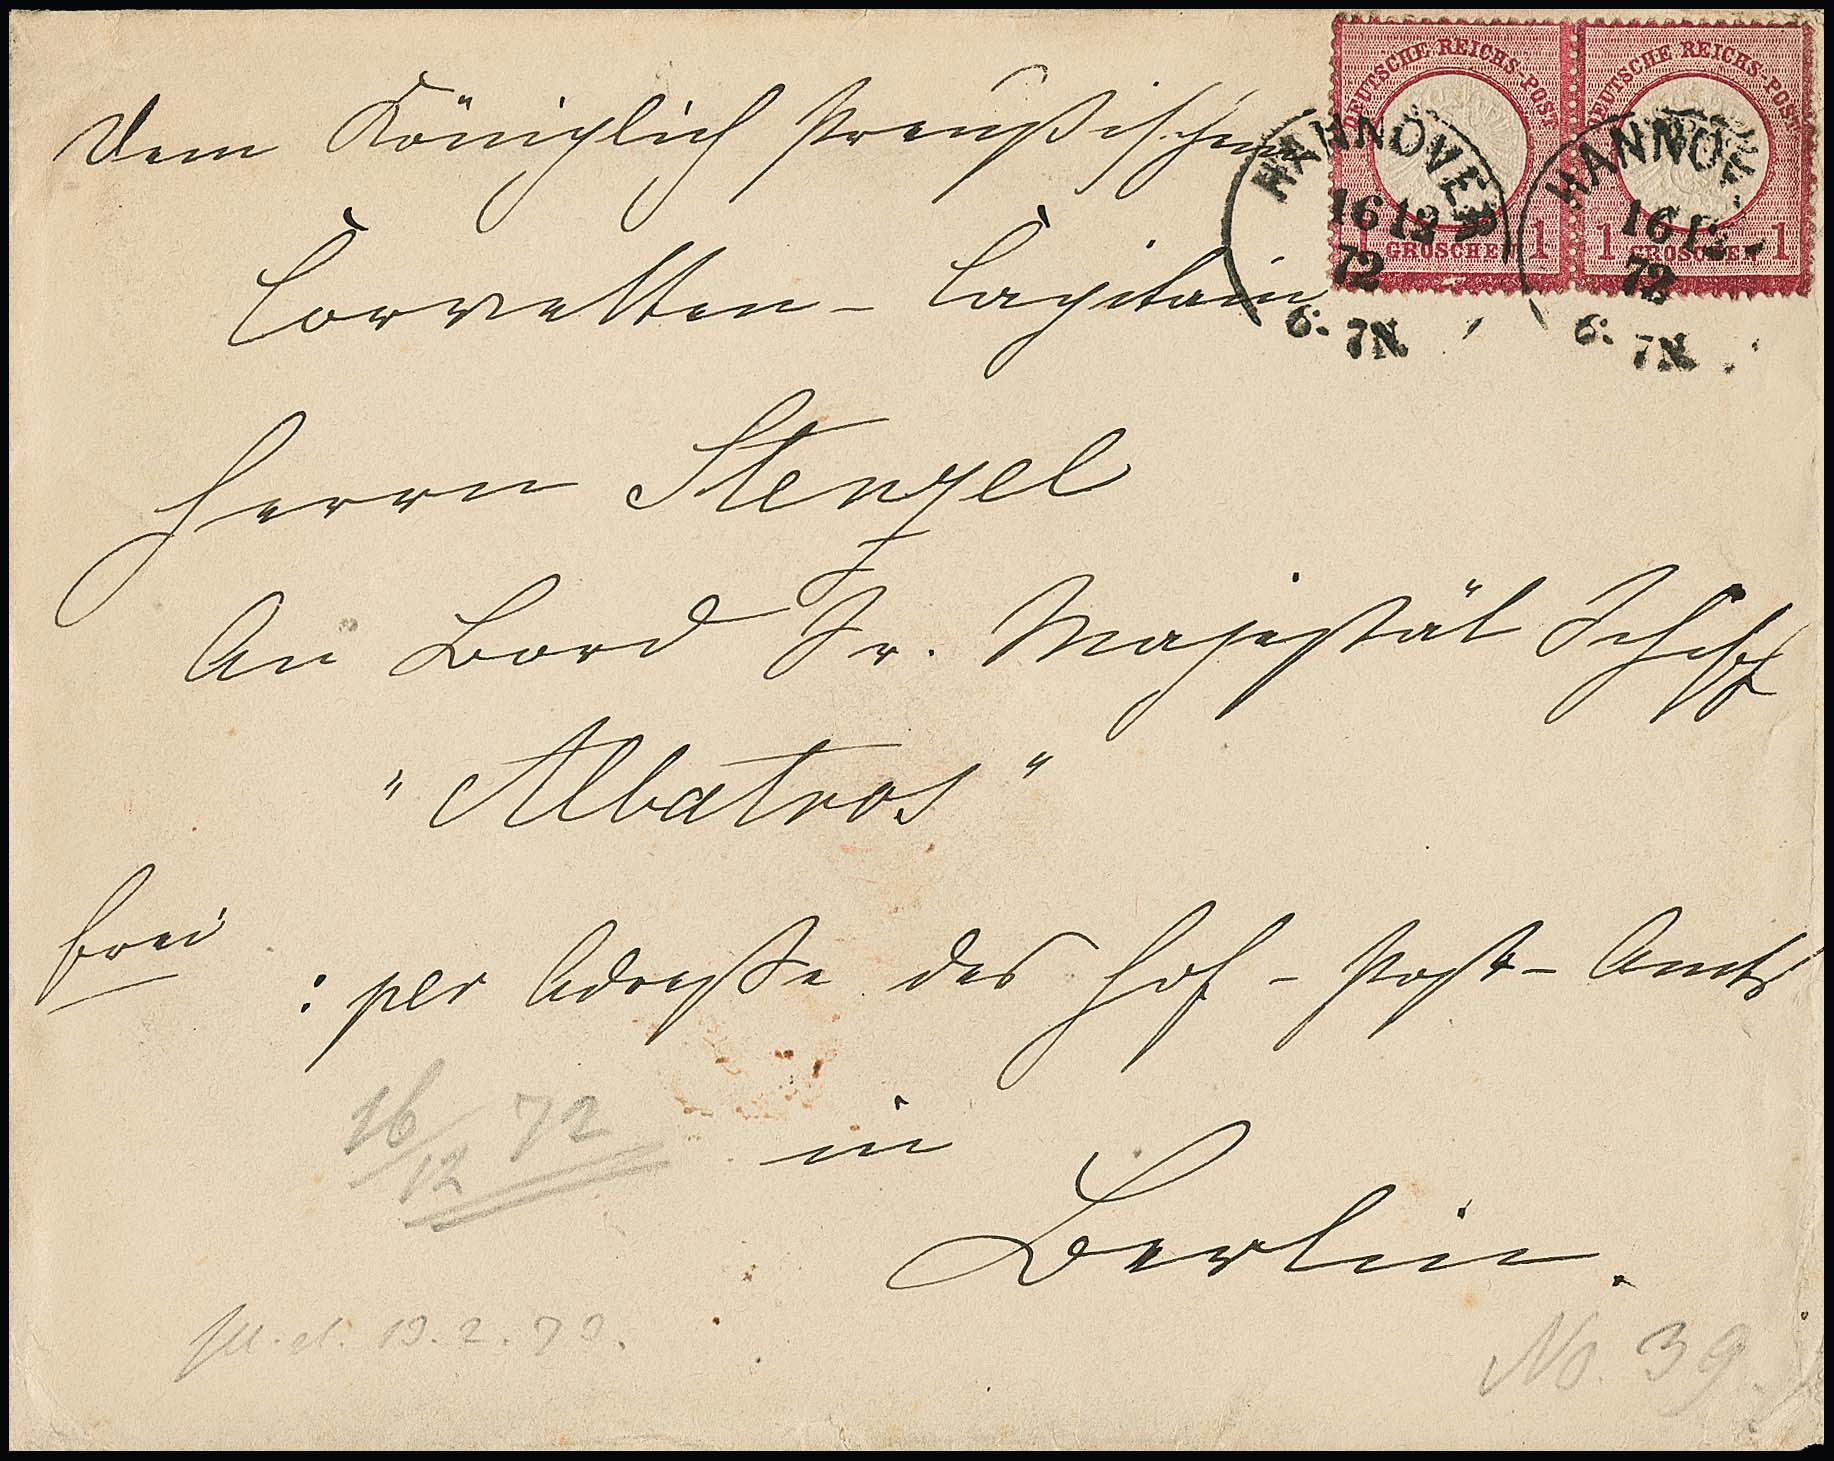 DEUTSCHE REICHS-POST DEUTSCHE REICHS-POST
1 GROSCHEN 1 1 GROSCHEN 1
HANNOVER HANNOVE
16 12 16 12
72 72
6. 7N. 6. 7N.
Dem Königlich Preußischen
Corvetten-Capitain
Herrn Stenzel
An Bord Sr. Majestät Schiff
"Albatros"
frei
: per Adresse des Hof-Post-Amts
in
Berlin.
16/12 72
19.2.73.
No. 39